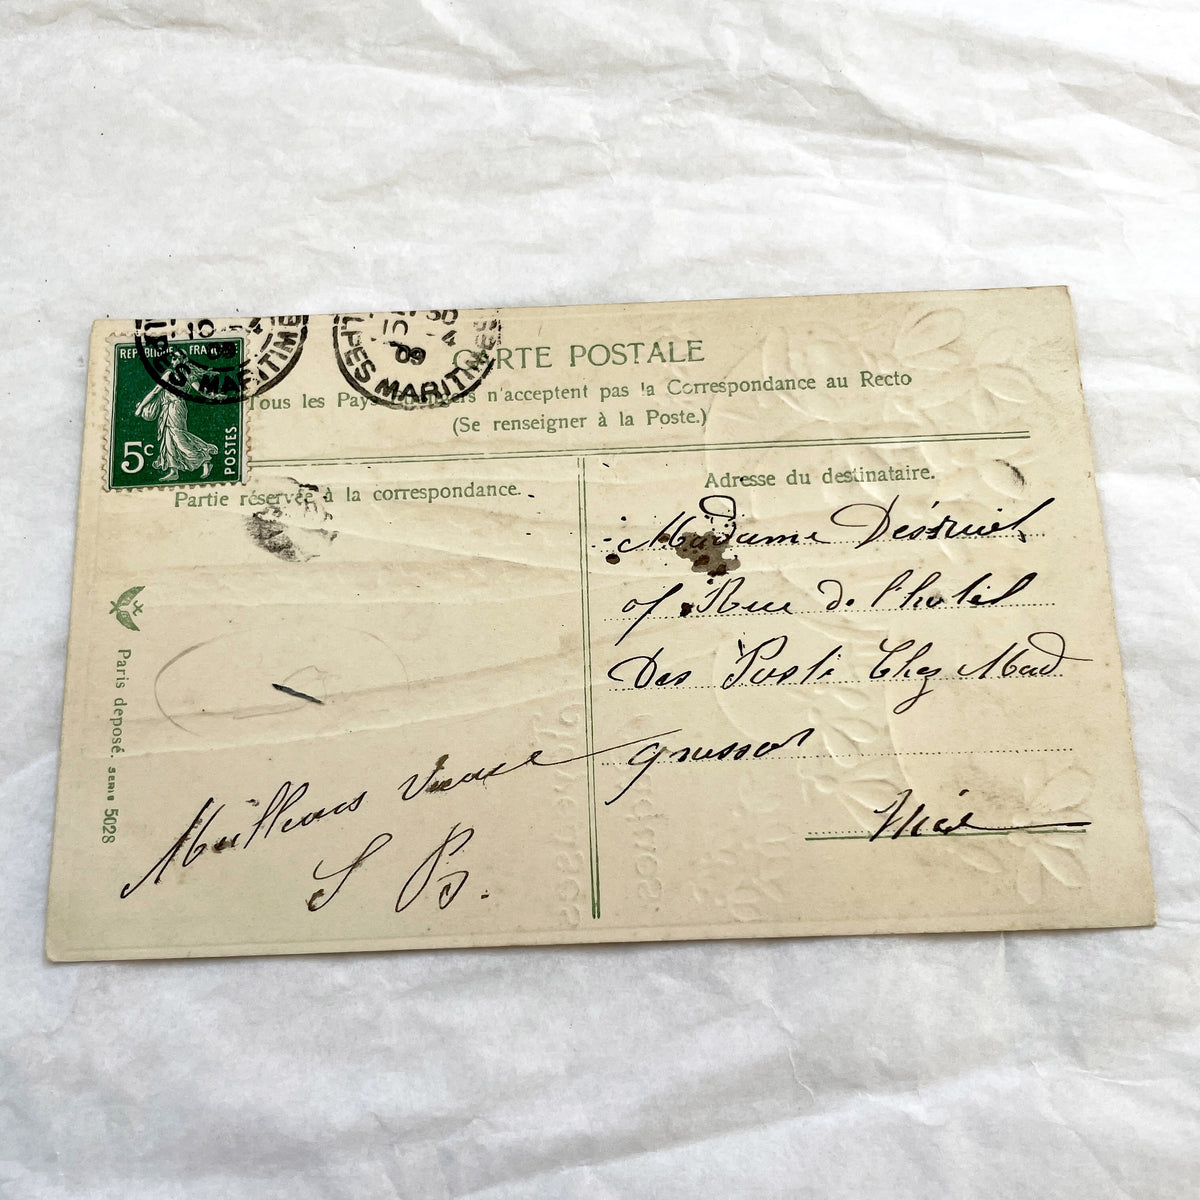 RÉPUBLIQUE FRANÇAISE
5c
POSTES
ALPES MARITIMES
10 4
09
ALPES MARITIMES
15 30
4
09
CARTE POSTALE
Tous les Pays étrangers n'acceptent pas la Correspondance au Recto
(Se renseigner à la Poste.)
Partie réservée à la correspondance.
Adresse du destinataire.
Madame
Rue de l'hotel
Des Poste Chez Mad
Nice
Meilleurs Vœux
S B.
Paris deposé. SERIE 5028